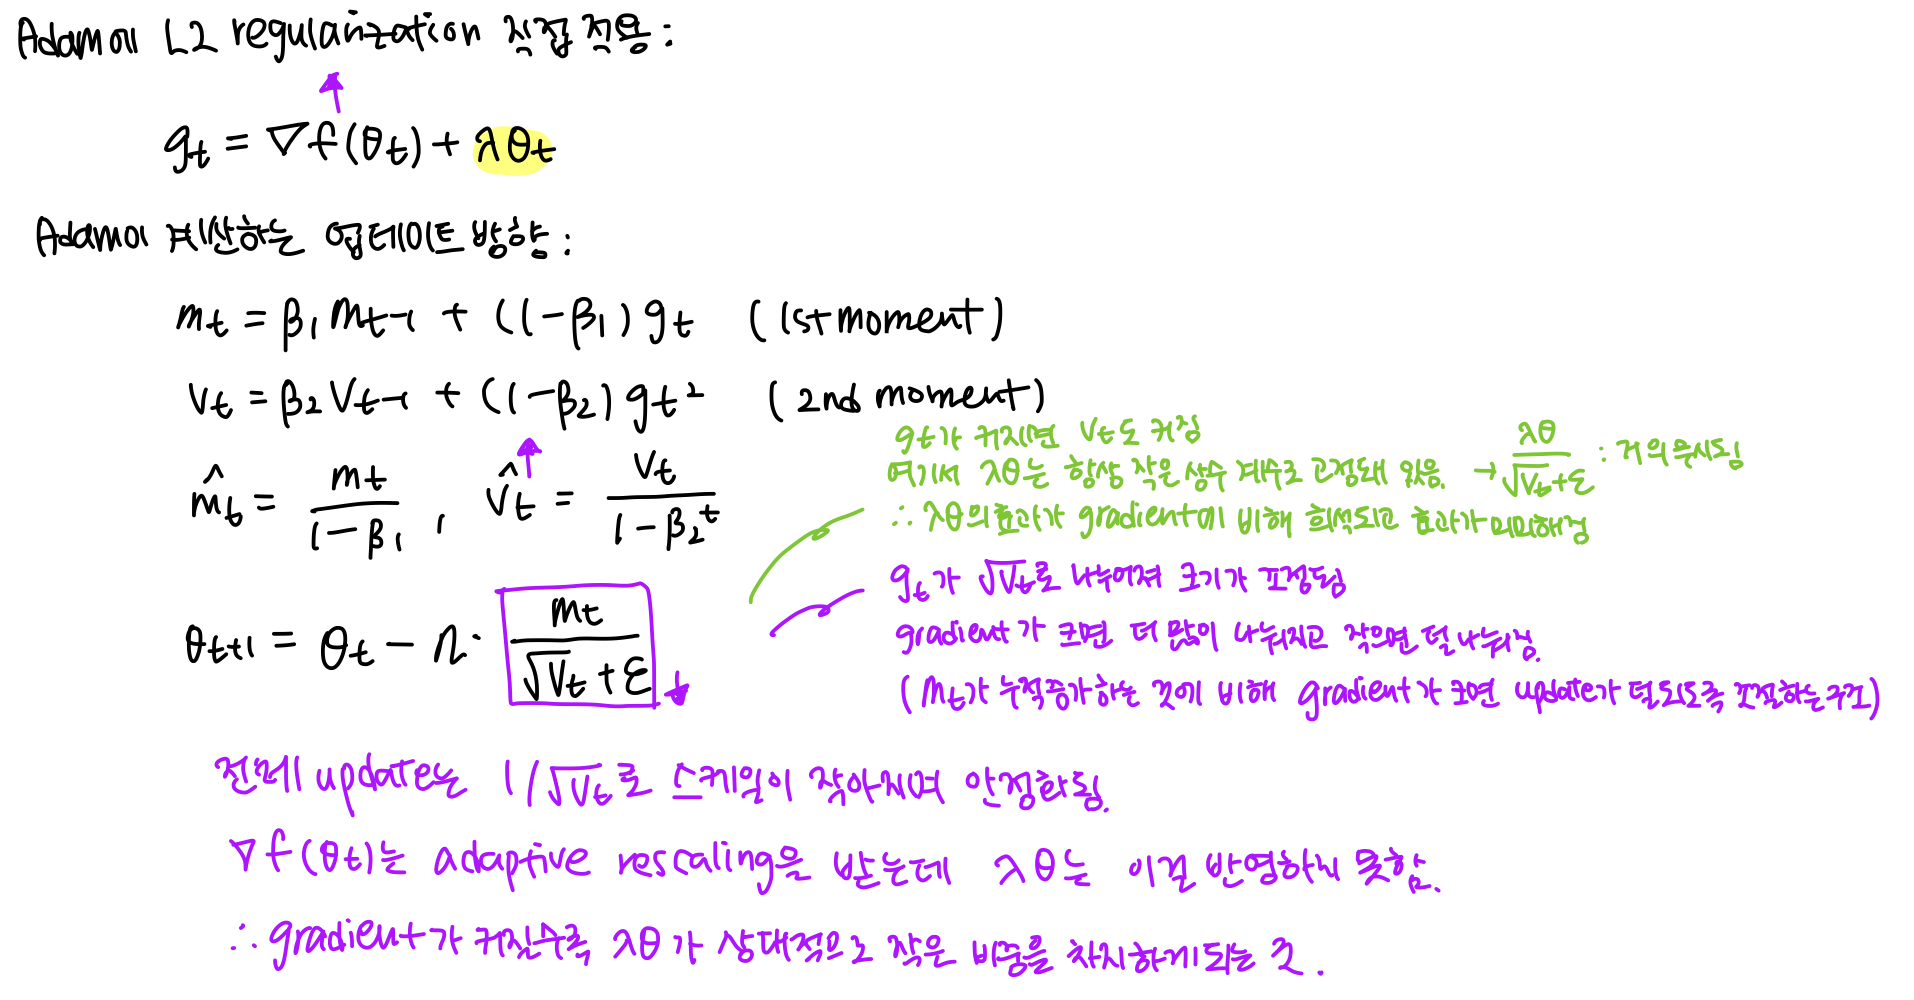 Adam에 L2 regularization 직접 적용 :
g_t = ∇f(θ_t) + λθ_t
Adam이 계산하는 업데이트 방향 :
m_t = β_1 m_{t-1} + (1-β_1) g_t (1st moment)
v_t = β_2 v_{t-1} + (1-β_2) g_t² (2nd moment)
m̂_t = m_t / (1-β_1) , v̂_t = v_t / (1-β_2^t)
g_t가 커지면 v_t도 커짐
여기서 λθ는 항상 작은 상수 계수로 고정돼 있음. → λθ / (√v_t + ε) : 거의 무시됨
∴ λθ의 효과가 gradient에 비해 희석되고 효과가 미미해짐
θ_{t+1} = θ_t - η · m_t / (√v_t + ε)
g_t가 √v_t로 나누어져 크기가 조정됨
gradient가 크면 더 많이 나눠지고 작으면 덜 나눠짐.
(m_t가 누적증가하는 것에 비해 gradient가 크면 update가 덜 되도록 조절하는 구조)
전체 update는 1/√v_t로 스케일이 작아지며 안정화됨.
∇f(θ_t)는 adaptive rescaling을 받는데 λθ는 이걸 반영하지 못함.
∴ gradient가 커질수록 λθ가 상대적으로 작은 비중을 차지하게 되는 것.